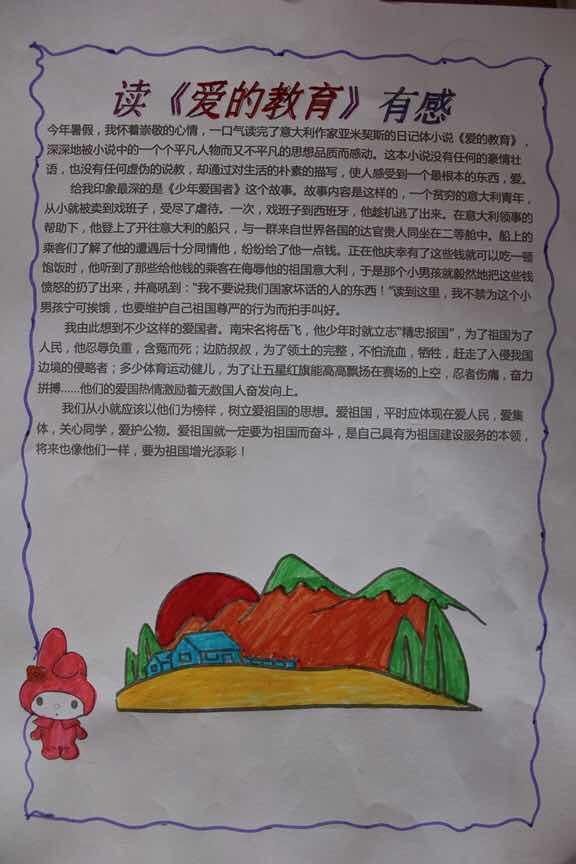 读《爱的教育》有感
今年暑假，我怀着崇敬的心情，一口气读完了意大利作家亚米契斯的日记体小说《爱的教育》，
深深地被小说中的一个个平凡人物而又不平凡的思想品质而感动。这本小说没有任何的豪情壮
语，也没有任何虚伪的说教，却通过对生活的朴素的描写，使人感受到一个最根本的东西，爱。
给我印象最深的是《少年爱国者》这个故事。故事内容是这样的，一个贫穷的意大利青年，
从小就被卖到戏班子，受尽了虐待。一次，戏班子到西班牙，他趁机逃了出来。在意大利领事的
帮助下，他登上了开往意大利的船只，与一群来自世界各国的达官贵人同坐在二等舱中。船上的
乘客们了解了他的遭遇后十分同情他，纷纷给了他一点钱。正在他庆幸有了这些钱就可以吃一顿
饱饭时，他听到了那些给他钱的乘客在侮辱他的祖国意大利，于是那个小男孩就毅然地把这些钱
愤怒的扔了出来，并高吼到：“我不要说我们国家坏话的人的东西！”读到这里，我不禁为这个小
男孩宁可挨饿，也要维护自己祖国尊严的行为而拍手叫好。
我由此想到不少这样的爱国者。南宋名将岳飞，他少年时就立志“精忠报国”，为了祖国为了
人民，他忍辱负重，含冤而死；边防叔叔，为了领土的完整，不怕流血，牺牲，赶走了入侵我国
边境的侵略者；多少体育运动健儿，为了让五星红旗能高高飘扬在赛场的上空，忍者伤痛，奋力
拼搏……他们的爱国热情激励着无数国人奋发向上。
我们从小就应该以他们为榜样，树立爱祖国的思想。爱祖国，平时应体现在爱人民，爱集
体，关心同学，爱护公物。爱祖国就一定要为祖国而奋斗，是自己具有为祖国建设服务的本领，
将来也像他们一样，要为祖国增光添彩！